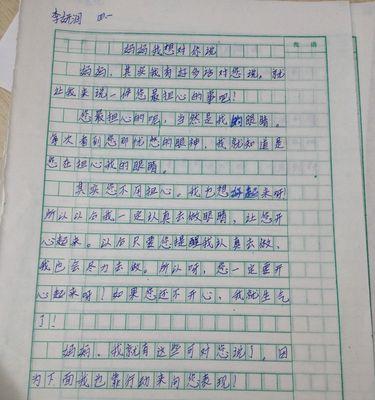 李妍润 四一
妈妈我想对你说
妈妈,其实我有好多话对您说,就
让我来说一件您最担心的事吧!
您最担心的呢,当然是我的眼睛。
每次看到您那忧愁的眼神,我就知道是
您在担心我的眼睛。
其实您不用担心。我也想好起来呀!
所以以后我一定认真去做眼睛,让您开
心起来。以后只要您提醒我认真去做,
我也会尽力去做。所以呀,您一定要开
心起来呀!如果您还不开心,我就生气
了!
妈妈,我就有这些可对您说了,因
为下面我也靠行动来向您表现!